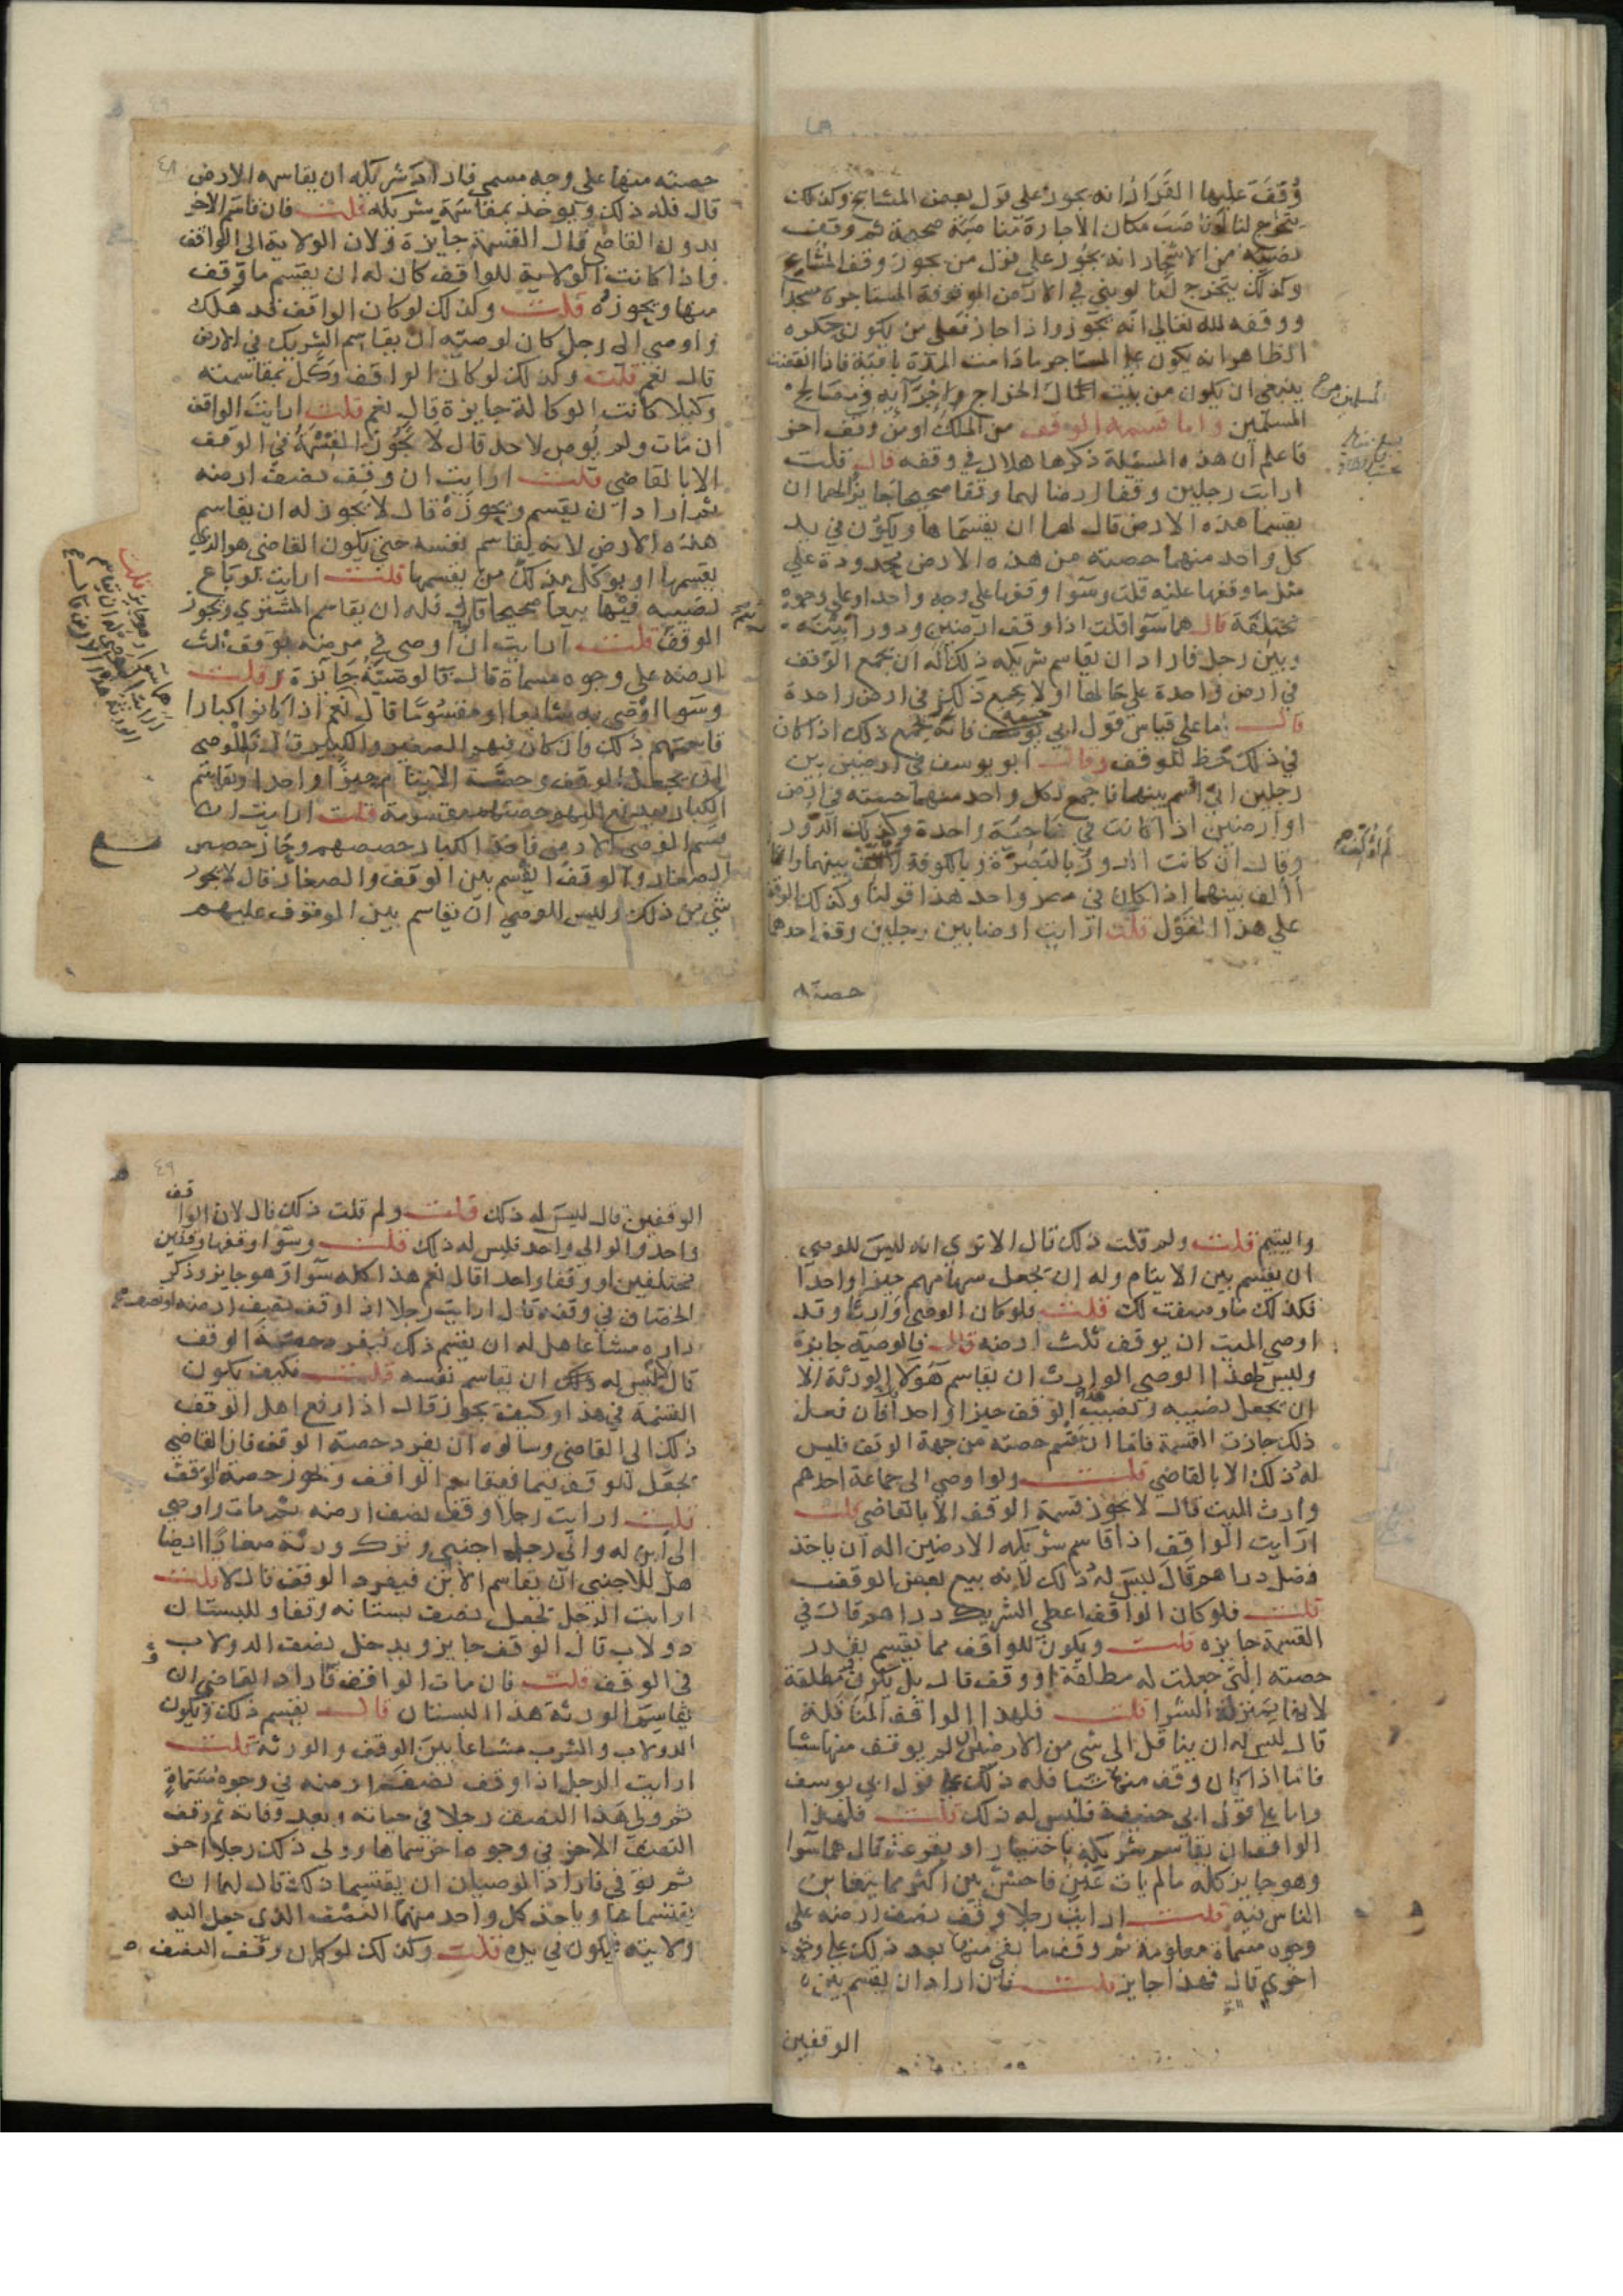 وُقِفَ عليها القرار انه يجوز على قول بعض المشايخ وكذلك
يتخرج لنا لو ناصَبَ مكان الاجارة مناصبة صحيحة ثم وقف
نصيبه من الاشجار انه يجوز على قول من يجوز وقف المشاع
وكذلك يتخرج لنا لو بنى في الارض الموقوفة المستاجرة مسجدا
ووقفه لله تعالى انه يجوز واذا جاز فعلى من يكون حكره
الظاهر انه يكون على المستاجر مادامت المدة باقية فاذا انقضت
ينبغي ان يكون من بيت المال الخراج واخراجه في مصالح
المسلمين واما قسمة الوقف من الملك او من وقف اخر
فاعلم ان هذه المسئلة ذكرها هلال في وقفه قال قلت
ارايت رجلين وقفا ارضا لهما وقفا صحيحا جايزا لهما ان
يقسما هذه الارض قال لهما ان يقسماها ويكون في يد
كل واحد منهما حصته من هذه الارض محدودة على
مثل ما وقفها عليه قلت وسوا وقفها على وجه واحد او على وجوه
مختلفة قال هما سوا قلت اذا وقف ارضين ودورا بينه
وبين رجل فاراد ان يقاسم شريكه ذلك اله ان يجمع الوقف
في ارض واحدة على حالها او لا يجمع ذلك في ارض واحدة
قال اما على قياس قول ابي يوسف فانه يجمع ذلك اذا كان
في ذلك حظ للوقف وقال ابو يوسف في ارضين بين
رجلين اني اقسم بينهما فاجمع لكل واحد منهما حصته في ارض
او ارضين اذا كانت في ناحية واحدة وكذلك الدور
وقال ان كانت الدور بالبصرة وبالكوفة بينهما وانما
أألف بينهما اذا كان في مصر واحد هذا قولنا وكذلك الوقف
على هذا القول قلت ارايت ارضا بين رجلين وقف احدهما
حصته
حصته منها على وجه مسمى فاراد شريكه ان يقاسمه الارض
قال فله ذلك ويوخذ بمقاسمة شريكه قلت فان قاسم الاخر
بدون القاضي قال القسمة جايزة ولان الولاية الى الواقف
واذا كانت الولاية للواقف كان له ان يقسم ما وقف
منها ويحوزه قلت وكذلك لو كان الواقف قد هلك
واوصى الى رجل كان لوصيه ان يقاسم الشريك في الارض
قال نعم قلت وكذلك لو كان الواقف وكّل بمقاسمته
وكيلا كانت الوكالة جايزة قال نعم قلت ارايت الواقف
ان مات ولم يُوص لاحد قال لا تجوز القسمة في الوقف
الا بالقاضي قلت ارايت ان وقف نصف ارضه
ثم اراد ان يقسم ويحوزه قال لا يجوز له ان يقاسم
هذه الارض لانه يقاسم نفسه حتى يكون القاضي هو الذي
يقسمها او يوكل بذلك من يقسمها قلت ارايت لو باع
نصيبه فيها بيعا صحيحا قال فله ان يقاسم المشتري ويحوز
الوقف قلت ارايت ان اوصى في مرضه بوقف ثلث
ارضه على وجوه مسماة قال فالوصية جايزة قلت
وسوا اوصى به مشاعا او مقسوما قال نعم اذا كانوا كبارا
قاسمهم ذلك وان كان فيهم الصغير والكبير قال فللوصي
ان يجعل الوقف وحصة الايتام حيزا واحدا ويقاسم
الكبار حصتهم مقسومة قلت ارايت ان
قسم الوصي الارض فاخذ الكبار حصصهم وحاز حصص
الصغار والوقف ايقسم بين الوقف والصغار قال لا يجوز
شي من ذلك وليس للوصي ان يقاسم بين الموقوف عليهم
واليتيم قلت ولم قلت ذلك قال الا ترى انه ليس للوصي
ان يقسم بين الايتام وله ان يجعل سهامهم حيزا واحدا
فكذلك ما وصفت لك قلت فلو كان الوصي وارثا وقد
اوصى الميت ان يوقف ثلث ارضه قال فالوصية جايزة
وليس لهذا الوصي الوارث ان يقاسم هؤلا الورثة الا
ان يجعل نصيبه ونصيب الوقف حيزا واحدا فان فعل
ذلك جازت القسمة فاما ان يقسم حصته من جهة الوقف فليس
له ذلك الا بالقاضي قلت ولو اوصى الى جماعة احدهم
وارث الميت قال لا يجوز قسمة الوقف الا بالقاضي قلت
ارايت الواقف اذا قاسم شريكه الارضين اله ان ياخذ
فضل دراهم قال ليس له ذلك لانه بيع لبعض الوقف
قلت فلو كان الواقف اعطى الشريك دراهم قال في
القسمة جايزه قلت ويكون للواقف مما يقسم بقدر
حصته التي جعلت له مطلقة او وقف قال بل يكون مطلقة
لانها بمنزلة الشرا قلت فلهذا الواقف المناقلة
قال ليس له ان يناقل الى شي من الارضين لم يوقف منها شيا
فاما اذا كان وقف منها شيا فله ذلك على قول ابي يوسف
واما على قول ابي حنيفة فليس له ذلك قلت فلهذا
الواقف ان يقاسم شريكه باختيار او بقرعة قال هما سوا
وهو جايز كله ما لم يات غبن فاحش بين اكثر مما يتغابن
الناس فيه قلت ارايت رجلا وقف نصف ارضه على
وجوه مسماة معلومة ثم وقف ما بقى منها بعد ذلك على وجوه
اخرى قال فهذا جايز قلت فان اراد ان يقسم بين
الوقفين
الوقفين قال ليس له ذلك قلت ولم قلت ذلك قال لان الواقف
واحد والوالي واحد فليس له ذلك قلت وسوا وقفها وقفين
مختلفين او وقفا واحدا قال نعم هذا كله سوا وهو جايز وذكر
الخصاف في وقفه قال ارايت رجلا اذا وقف نصف ارضه او نصف
داره مشاعا هل له ان يقسم ذلك فيفرد حصة الوقف
قال ليس له ان يقاسم نفسه قلت فكيف يكون
القسمة في هذا وكيف يجوز قال اذا رفع اهل الوقف
ذلك الى القاضي وسالوه ان يفرد حصة الوقف فان القاضي
يجعل للوقف قيما فيقاسم الواقف ويحوز حصة الوقف
قلت ارايت رجلا وقف نصف ارضه ثم مات واوصى
الى ابن له والى رجل اجنبي وترك ورثة صغارا ايضا
هل للاجنبي ان يقاسم الابن فيفرد الوقف قال لا قلت
ارايت الرجل يجعل نصف بستانه وقفا وللبستان
دولاب قال الوقف جايز ويدخل نصف الدولاب
في الوقف قلت فان مات الواقف فاراد القاضي ان
يقاسم الورثة هذا البستان قال يقسم ذلك ويكون
الدولاب والشرب مشاعا بين الوقف والورثة قلت
ارايت الرجل اذا وقف نصف ارضه في وجوه مسماةٍ
ثم ولى هذا النصف رجلا في حياته وبعد وفاته ثم وقف
النصف الاخر في وجوه اخر سماها وولى ذلك رجلا اخر
ثم توفي فاراد الوصيان ان يقتسما ذلك قال لهما ان
يقتسماها وياخذ كل واحد منهما النصف الذي جعل اليه
ولايته فيكون في يده قلت وكذلك لو كان وقف النصف